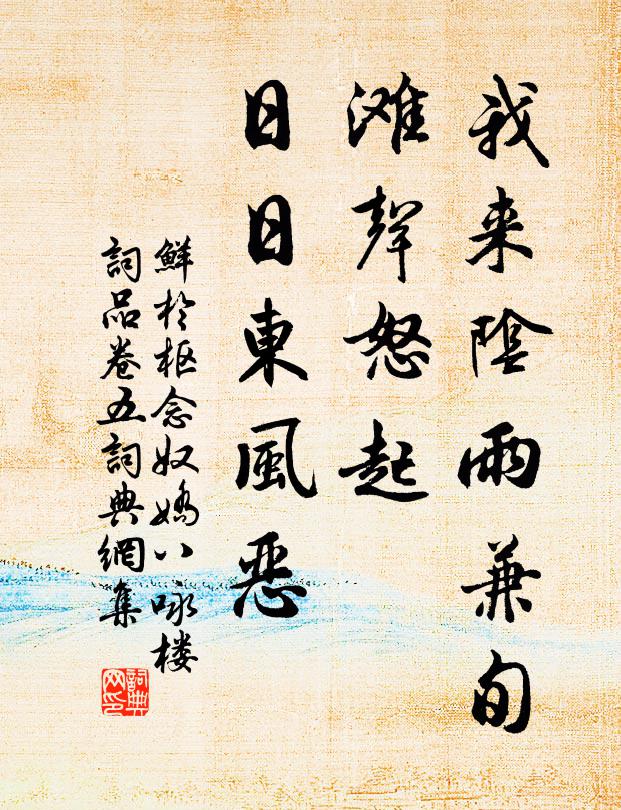 我来陰雨兼旬
滩聲怒起
日日東風惡
鮮於枢念奴嬌八咏楼
詞品卷五詞典網集
詞典
网印